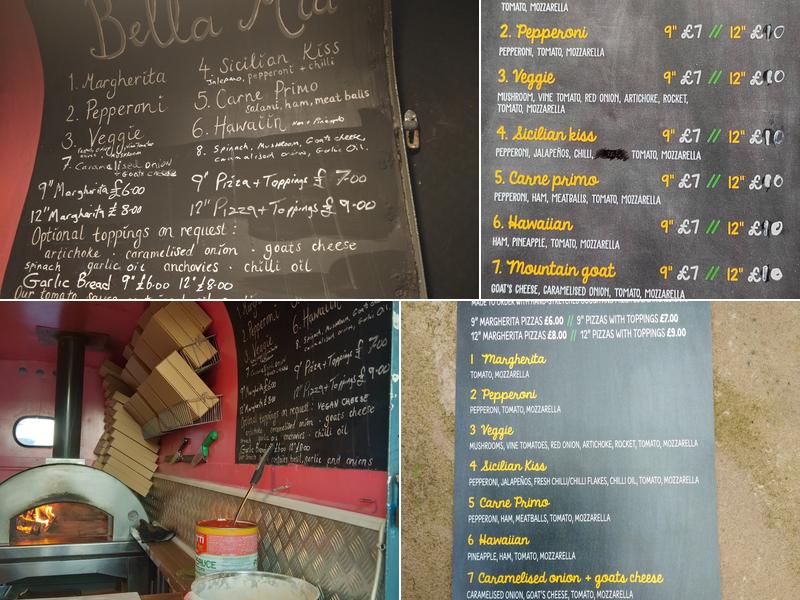 Bella Mia
1. Margherita
2. Pepperoni
3. Veggie
7. Caramelised onion
+ Goats cheese
4. Sicilian Kiss
Jalepeno, pepperoni + chilli
5. Carne Primo
salami, ham, meat balls
6. Hawaiin Ham + Pineapple
8. Spinach, Mushroom, Goats cheese,
caramalised onions, Garlic Oil.
9" Margherita £6.00
12" Margherita £ 8.00
9" Pizza + Toppings £ 7.00
12" Pizza + Toppings £ 9.00
Optional toppings on request:
artichoke . caramelised onion . goats cheese
spinach garlic oil anchovies . chilli oil
Garlic Bread 9" £6.00 12" £8.00
Our tomato sauce
TOMATO, MOZZARELLA
2. Pepperoni 9" £7 // 12" £10
PEPPERONI, TOMATO, MOZZARELLA
3. Veggie 9" £7 // 12" £10
MUSHROOM, VINE TOMATO, RED ONION, ARTICHOKE, ROCKET,
TOMATO, MOZZARELLA
4. Sicilian kiss 9" £7 // 12" £10
PEPPERONI, JALAPEÑOS, CHILLI, TOMATO, MOZZARELLA
5. Carne primo 9" £7 // 12" £10
PEPPERONI, HAM, MEATBALLS, TOMATO, MOZZARELLA
6. Hawaiian 9" £7 // 12" £10
HAM, PINEAPPLE, TOMATO, MOZZARELLA
7. Mountain goat 9" £7 // 12" £10
GOAT'S CHEESE, CARAMELISED ONION, TOMATO, MOZZARELLA
2. Pepperoni
3. Veggie
6. Hawaiin
8. Spinach, Mushroom, Goats cheese,
9" Pizza + Toppings £ 7.00
12" Pizza + Toppings £ 9.00
Optional toppings on request: VEGAN CHEESE
artichoke . caramelised onion . goats cheese
garlic oil anchovies . chilli oil
Garlic Bread
contains basil, garlic and onions
SAUCE
MADE TO ORDER WITH HAND-STRETCHED DOUGH
9" MARGHERITA PIZZAS £6.00 // 9" PIZZAS WITH TOPPINGS £7.00
12" MARGHERITA PIZZAS £8.00 // 12" PIZZAS WITH TOPPINGS £9.00
1 Margherita
TOMATO, MOZZARELLA
2 Pepperoni
PEPPERONI, TOMATO, MOZZARELLA
3 Veggie
MUSHROOMS, VINE TOMATOES, RED ONION, ARTICHOKE, ROCKET, TOMATO, MOZZARELLA
4 Sicilian Kiss
PEPPERONI, JALAPEÑOS, FRESH CHILLI/CHILLI FLAKES, CHILLI OIL, TOMATO, MOZZARELLA
5 Carne Primo
PEPPERONI, HAM, MEATBALLS, TOMATO, MOZZARELLA
6 Hawaiian
PINEAPPLE, HAM, TOMATO, MOZZARELLA
7 Caramelised onion + goats cheese
CARAMELISED ONION, GOAT'S CHEESE, TOMATO, MOZZARELLA